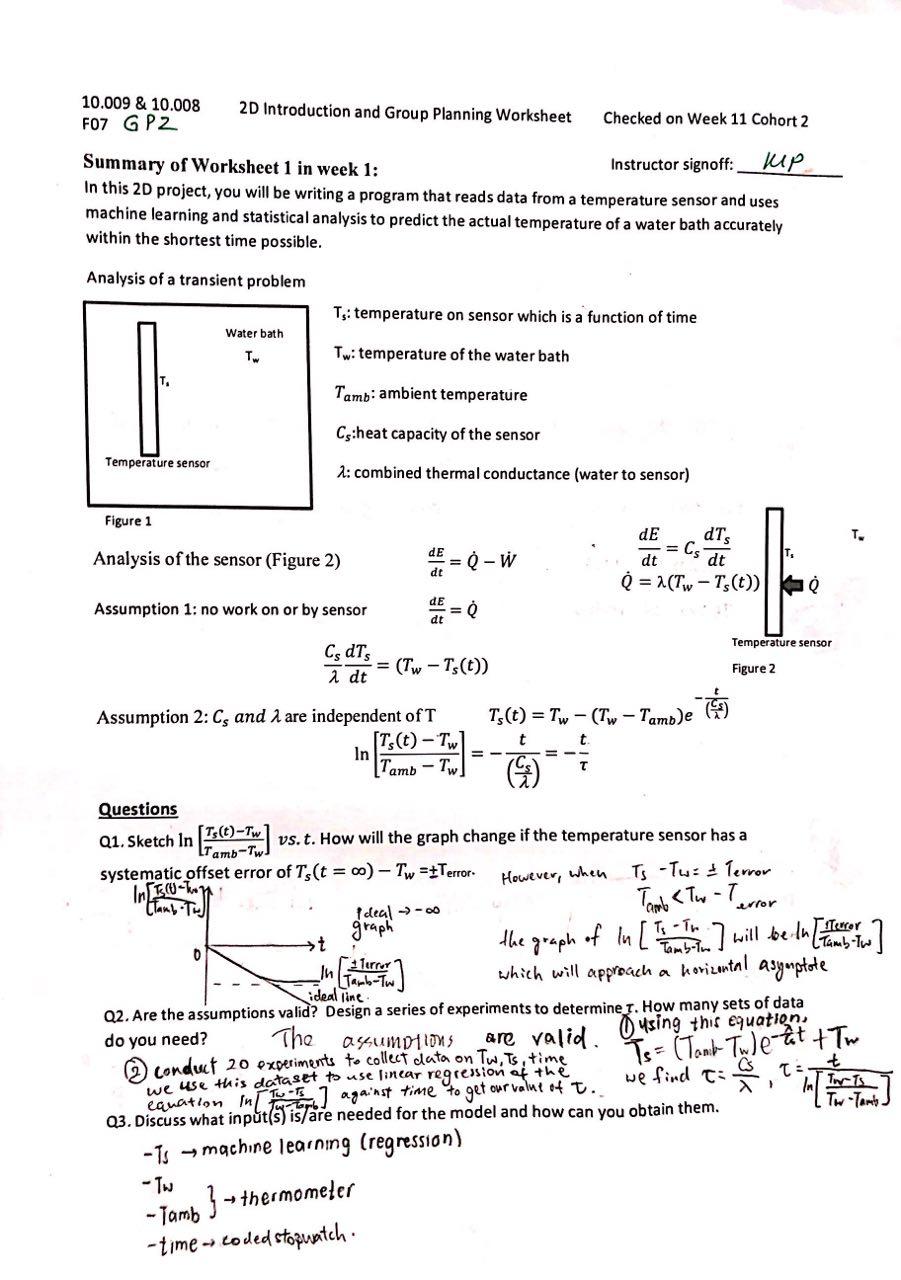 10.009 & 10.008 2D Introduction and Group Planning Worksheet Checked on Week 11 Cohort 2
F07 GP2
Summary of Worksheet 1 in week 1: Instructor signoff:
In this 2D project, you will be writing a program that reads data from a temperature sensor and uses
machine learning and statistical analysis to predict the actual temperature of a water bath accurately
within the shortest time possible.
Analysis of a transient problem
Water bath
T_w
T_s
Temperature sensor
Figure 1
T_s: temperature on sensor which is a function of time
T_w: temperature of the water bath
T_amb: ambient temperature
C_s:heat capacity of the sensor
λ: combined thermal conductance (water to sensor)
Analysis of the sensor (Figure 2) dE/dt = Q̇ − Ẇ
dE/dt = C_s dT_s/dt
Q̇ = λ(T_w − T_s(t))
T_s
T_w
Q̇
Temperature sensor
Figure 2
Assumption 1: no work on or by sensor dE/dt = Q̇
C_s/λ dT_s/dt = (T_w − T_s(t))
Assumption 2: C_s and λ are independent of T T_s(t) = T_w − (T_w − T_amb)e^(−t/(C_s/λ))
ln [(T_s(t) − T_w)/(T_amb − T_w)] = − t/(C_s/λ) = − t/τ
Questions
Q1. Sketch ln [(T_s(t)−T_w)/(T_amb−T_w)] vs. t. How will the graph change if the temperature sensor has a
systematic offset error of T_s(t = ∞) − T_w =±T_error.
ln[(Ts(t)-Tw)/(Tamb-Tw)]
ideal → -∞
graph
t
0
ln [±Terror/(Tamb-Tw)]
ideal line.
However, when Ts - Tw = ± Terror
Tamb < Tw - Terror
the graph of ln [(Ts - Tw)/(Tamb-Tw)] will be ln [±Terror/(Tamb-Tw)]
which will approach a horizontal asymptote
Q2. Are the assumptions valid? Design a series of experiments to determine τ. How many sets of data
do you need? The assumptions are valid.
① using this equation,
Ts = (Tamb-Tw)e^(-λ/Cs t) + Tw
we find τ = Cs/λ, τ = t/ln[(Tw-Ts)/(Tw-Tamb)]
② conduct 20 experiments to collect data on Tw, Ts, time
we use this dataset to use linear regression of the
equation ln[(Tw-Ts)/(Tw-Tamb)] against time to get our value of τ.
Q3. Discuss what input(s) is/are needed for the model and how can you obtain them.
-Ts → machine learning (regression)
-Tw
-Tamb } → thermometer
-time → coded stopwatch.